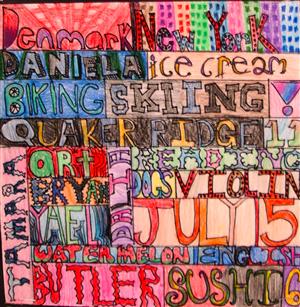 Denmark New York
DANIELA ice cream
BIKING SKIING!
QUAKER RIDGE 11
TAMARA
ART READING
BRYAN DOGS VIOLIN
YAEL JULY 15
WATERMELON ENGLISH
BUTLER SUSHI